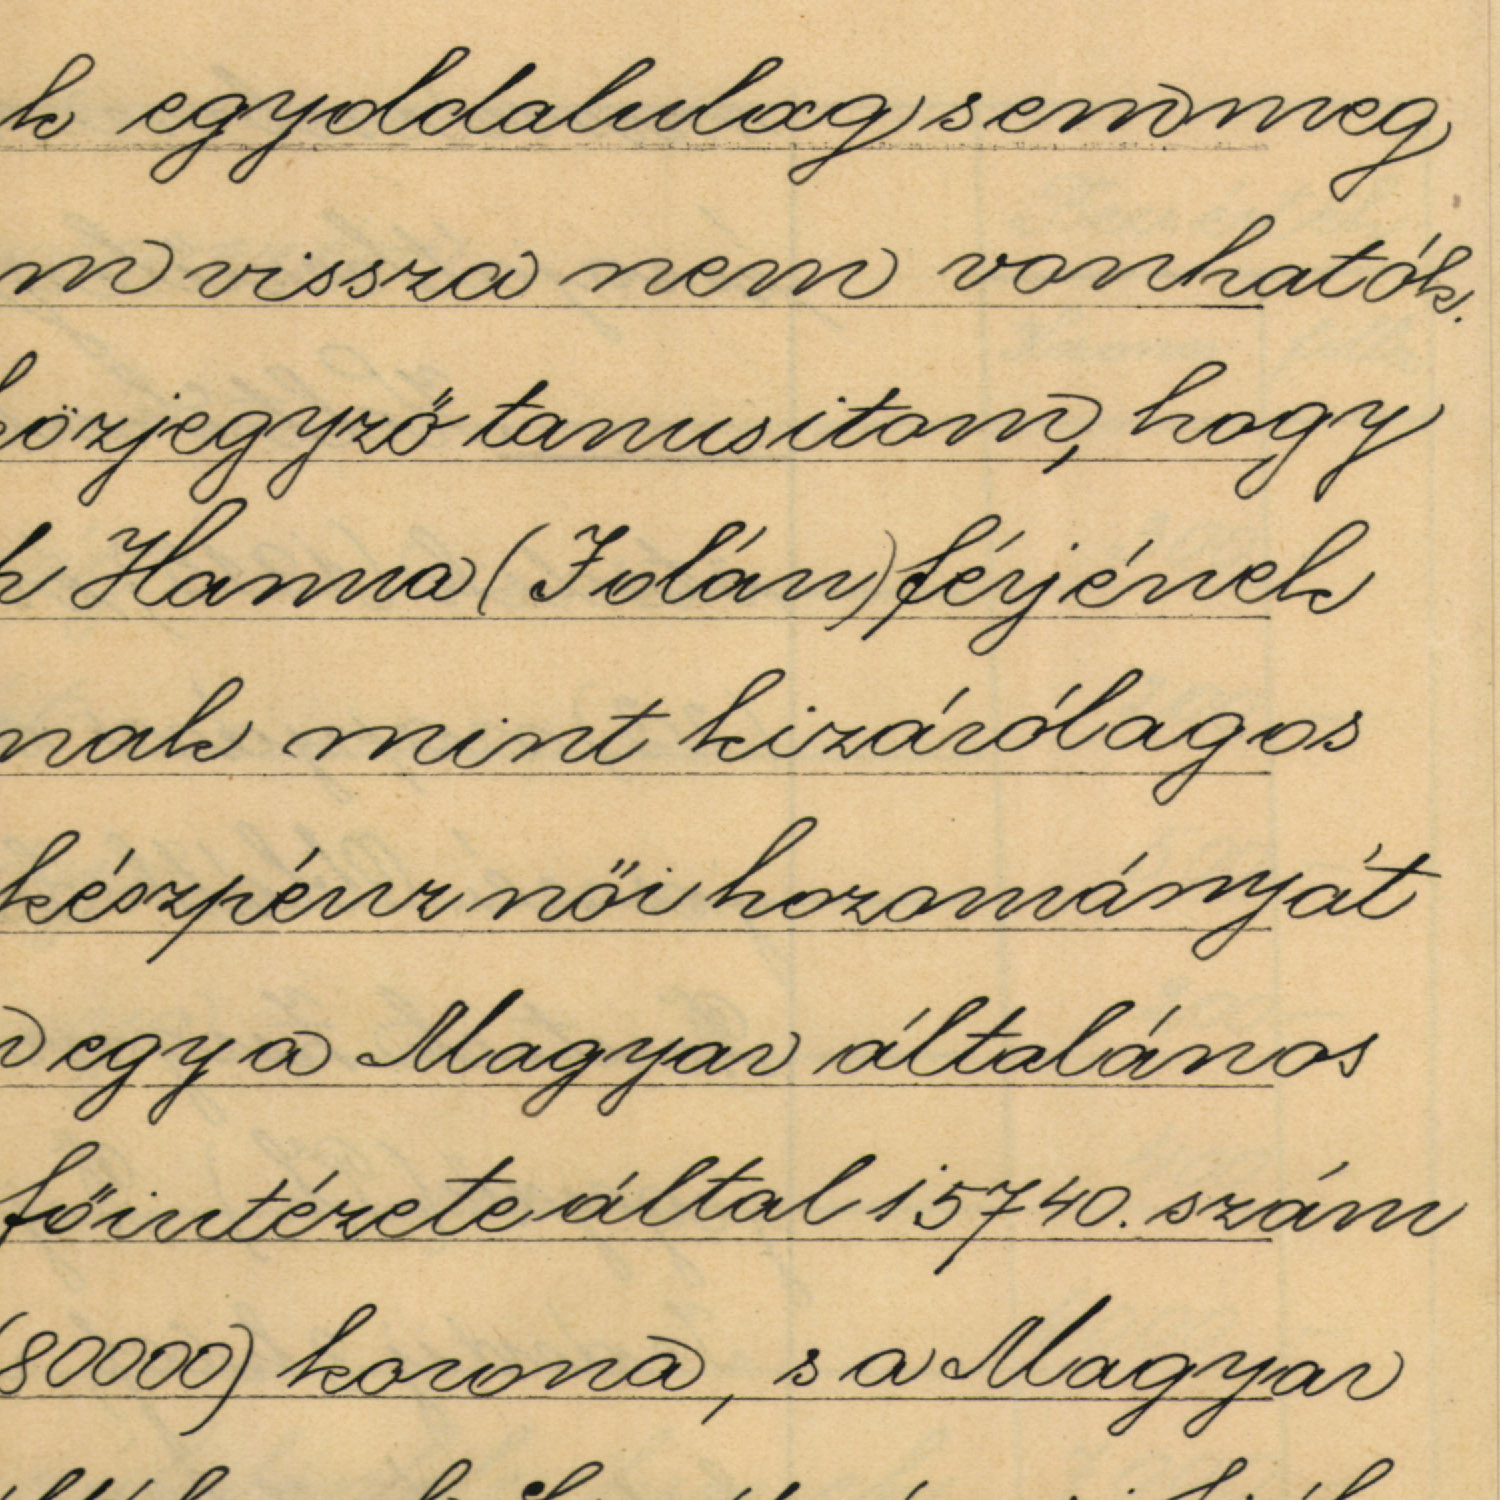 k egyoldalulag sem meg
m vissza nem vonhatók.
közjegyző tanusitom, hogy
k Hanna (Jolán) férjének
nak mint kizárólagos
készpénz női hozományát
egy a Magyar általános
főintézete által 15740. szám
(80000) korona, s a Magyar